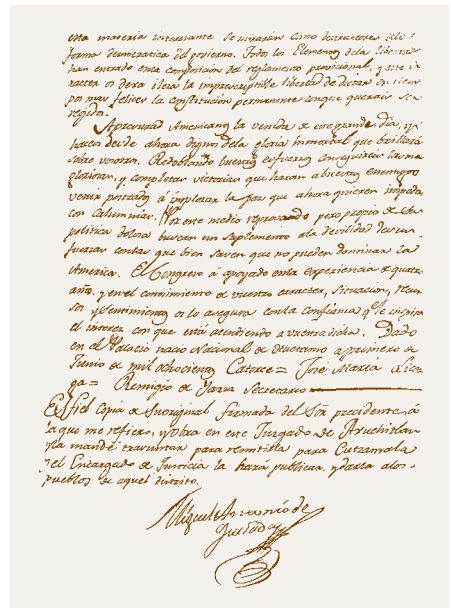 esta materia interesante se mirarán como detractores de la
forma democratica del govierno. Todos los Elementos dela libertad
han entrado en la composicion del reglamento provicional, y este ca
racter os dexa ilesa la imprescriptible libertad de dictar en tiem
pos mas felices la constitucion permanente con que querais ser
regidos.
Apresurad Americanos la venida de ese grande dia, y
haceos desde ahora dignos dela gloria inmortal que brillará
sobre vosotros. Redoblando buestros esfuerzos conseguireis las mas
gloriosas, y completas victorias que haran a buestros enemigos
venir postrados á implorar la paz que ahora quieren impedir
con Calumnias. Por este medio reprovado pero propio de su
politica dolosa buscan un suplemento ala devilidad desus
fuerzas con las que bien saven que no pueden dominar la
America. El Congreso á apoyado enla experiencia de quatro
años, y en el conocimiento de vuestro caracter, situacion, recur
sos y sentimientos os lo asegura con la confianza q.e le inspira
el interes con que está atendiendo a vuestra dicha. Dado
en el Palacio nacio Nacional de Huetamo a primero de
Junio de mil ochocientos Catorce = José Maria Licea
ga = Remigio de Yarza Secretario
Es fiel Copia de su original firmada del Sõr precidente, á
la que me refiero, y obra en este Juzgado de Axuchitlan
y la mandé trasuntar para remitirla para Cutzamala
y el Encargado de Justicia la hará publicar, y darla alos
pueblos de aquel distrito.
Miguel Antonio de